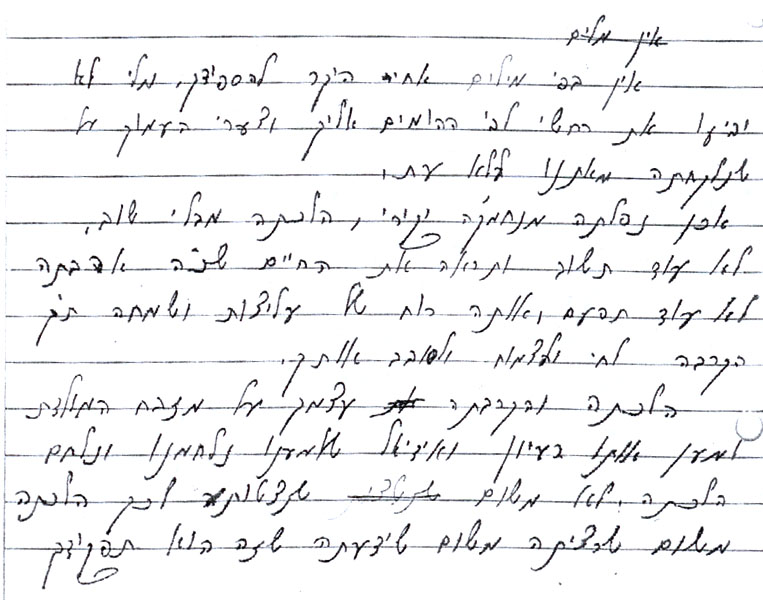 אין מלים
אין בפי מילים אחי היקר להספידך, מלי לא
יביעו את רחשי לבי ההומים אליך וצערי העמוק על
שנלקחתה מאתנו ללא עת.
אכן נפלתה מנחמק'ה יקירי, הלכתה מבלי שוב,
לא עוד תשוב ותראה את החיים שכ"כ אהבתה
לא עוד תפעם אותה רוח של עליצות ושמחה
הקרבה לחי ולצמוח ולסובב אותך.
הלכתה והקרבתה עצמך על מזבח המולדת
למען אותו רעיון ואידיאל שלמענו נלחמנו ונלחם
הלכתה, לא משום שנצטותה לכך הלכתה
משום שרצית משום שידעתה שזה הוא תפקידך